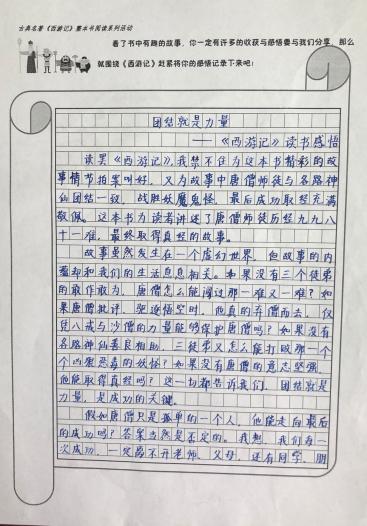 古典名著《西游记》整本书阅读系列活动
看了书中有趣的故事，你一定有许多的收获与感悟要与我们分享，那么
就围绕《西游记》赶紧将你的感悟记录下来吧！
团结就是力量
——《西游记》读书感悟
读罢《西游记》，我禁不住为这本书精彩的故
事情节拍案叫好，又为故事中唐僧师徒与各路神
仙团结一致，战胜妖魔鬼怪，最后成功取经充满
敬佩。这本书为读者讲述了唐僧师徒历经九九八
十一难，最终取得真经的故事。
故事虽然发生在一个虚幻世界，但故事的内
蕴却和我们的生活息息相关。如果没有三个徒弟
的敢作敢为，唐僧怎么能闯过那一难又一难？如
果唐僧批评、驱逐悟空时，他真的弃僧而去，仅
凭八戒与沙僧的力量能够保护唐僧吗？如果没有
各路神仙善良相助，三徒弟又怎么能打败那一个
个凶狠恶毒的妖怪？如果没有唐僧的意志坚强，
他能取得真经吗？这一切都告诉我们，团结就是
力量，是成功的关键。
假如唐僧只是孤单的一个人，他能走向最后
的成功吗？答案当然是否定的。我想，我们每一
次成功，一定离不开老师、父母，还有同学、朋